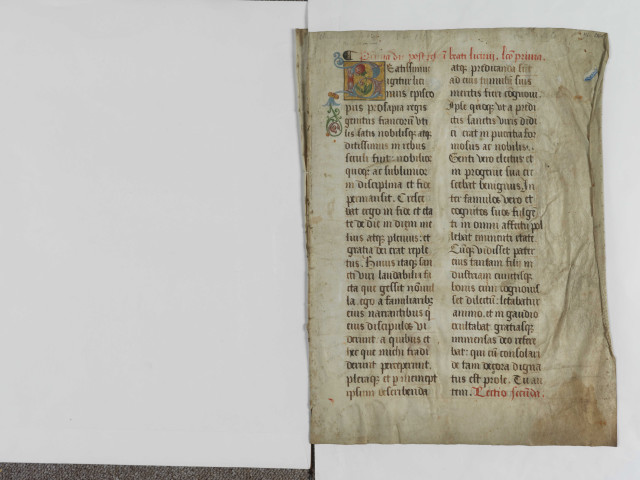 beati licinii. lco prima.
Beatissimus
igitur lici
nius episco
pus prosapia regis
genitus francorum uti
lis satis nobilisq; atq;
ditissimus in rebus
seculi fuit: nobilior
quoq; ac sublimior
in disciplina et fide
permansit. Cresce
bat ergo in fide et eta
te de die in diem me
lius atq; plenius: et
gratia dei erat reple
tus. Huius itaq; san
cti viri laudabilia fa
cta que gessit nonnul
la. ego a familiarib;
eius narrantibus q
eius discipulos vi
derunt a quibus et
hec que michi tradi
derunt perceperunt.
pleraq; et
ipsum describenda
atq; predicanda sunt
ad eius tumulum suis
meritis fieri cognovi.
Ipse quoq; ut a predi
ctis sanctis viris didi
ci erat in pueritia for
mosus ac nobilis.
Genti vero electus et
in progenie sua cre
scebat benignus. In
ter famulos vero et
cognitos suos fulge
ti in omni affectu pol
lebat eminenti etate.
Cumq; vidisset pater
eius tantam filii in
dustriam cunctisq;
bonis eum cognovis
set dilectum: letabatur
animo. et in gaudio
exultabat gratiasq;
immensas deo refere
bat: qui eum consolari
de tam decora digna
tus est prole. Tu au
tem. Lectio secunda.